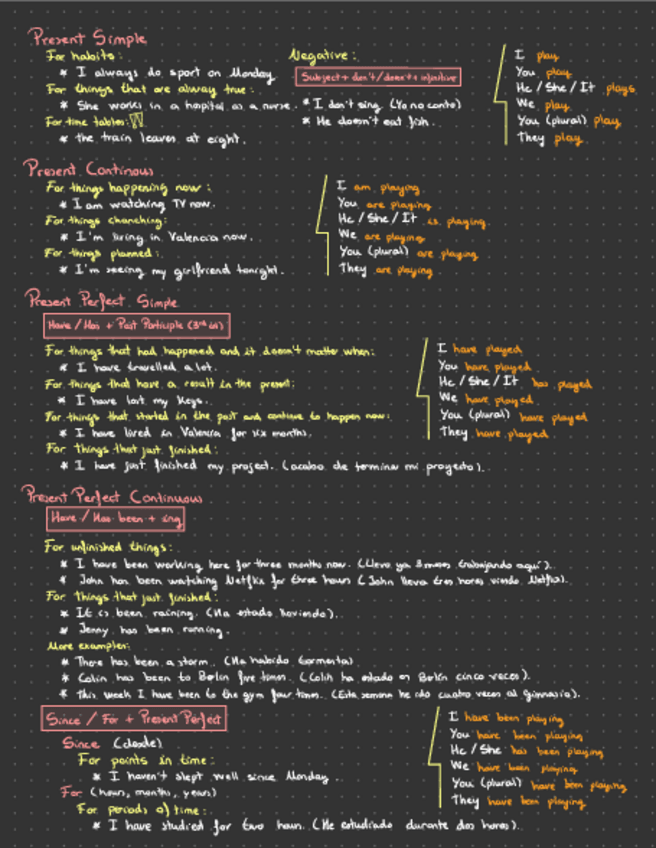 Present Simple
For habits:
* I always do sport on Monday
For things that are alway true:
* She works in a hospital as a nurse.
For time tables:
* the train leaves at eight.
Negative:
Subject + don't/doesn't + infinitive
* I don't sing (Yo no canto)
* He doesn't eat fish.
I play
You play
He / She / It plays
We play
You (plural) play
They play
Present Continous
For things happening now:
* I am watching TV now.
For things chanching:
* I'm living in Valencia now.
For things planned:
* I'm seeing my girlfriend tonight.
I am playing
You are playing
He / She / It is playing
We are playing
You (plural) are playing
They are playing
Present Perfect Simple
Have / Has + Past Participle (3rd col)
For things that had happened and it doesn't matter when:
* I have travelled a lot.
For things that have a result in the present:
* I have lost my keys.
For things that started in the past and continue to happen now:
* I have lived in Valencia for six months.
For things that just finished:
* I have just finished my project. (acabo de terminar mi proyecto).
I have played
You have played
He / She / It has played
We have played
You (plural) have played
They have played
Present Perfect Continuous
Have / Has been + ing
For unfinished things:
* I have been working here for three months now. (Llevo ya 3 meses trabajando aquí).
* John has been watching Netflix for three hours (John lleva tres horas viendo Netflix).
For things that just finished:
* It is been raining. (Ha estado lloviendo).
* Jenny has been running.
More examples:
* There has been a storm. (Ha habido tormenta)
* Colin has been to Berlin five times. (Colin ha estado en Berlín cinco veces).
* This week I have been to the gym four times. (Esta semana he ido cuatro veces al gimnasio).
Since / For + Present Perfect
Since (desde)
For points in time:
* I haven't slept well since Monday.
For (hours, months, years)
For periods of time:
* I have studied for two hours. (He estudiado durante dos horas).
I have been playing
You have been playing
He / She has been playing
We have been playing
You (plural) have been playing
They have been playing